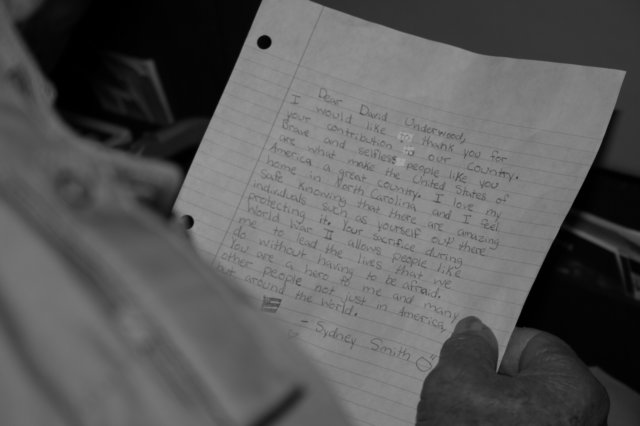 Dear David Underwood,
I would like to thank you for
your contribution to our country.
Brave and selfless people like you
are what make the United States of
America a great country. I love my
home in North Carolina and I feel
safe knowing that there are amazing
individuals such as yourself out there
protecting it. Your sacrifice during
World War II allows people like
me to lead the lives that we
do without having to be afraid.
You are a hero to me and many
other people not just in America,
but around the world.
- Sydney Smith